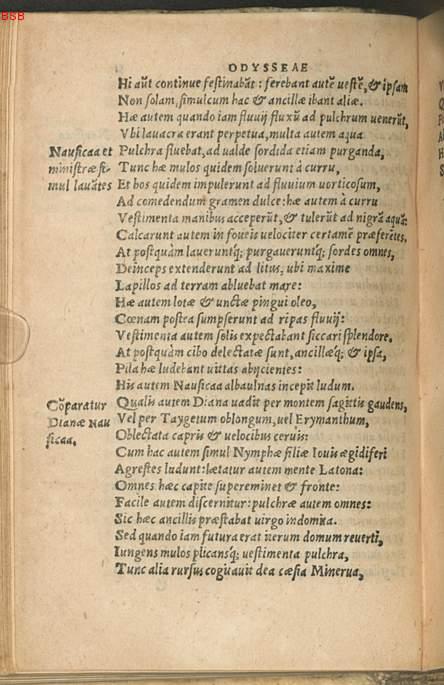 BSB
ODYSSEAE
Hi aūt continue festinabāt: ferebant autē uestē, & ipsam
Non solam, simulcum hac & ancillæ ibant aliæ.
Hæ autem quando iam fluuij fluxū ad pulchrum uenerūt,
Vbi lauacra erant perpetua, multa autem aqua
Pulchra fluebat, ad ualde sordida etiam purganda,
Tunc hæ mulos quidem soluerunt à curru,
Et hos quidem impulerunt ad fluuium uorticosum,
Ad comedendum gramen dulce: hæ autem à curru
Vestimenta manibus acceperūt, & tulerūt ad nigrā aquā:
Calcarunt autem in foueis uelociter certamē præferētes.
At postquàm laueruntq́; purgaueruntq́; sordes omnes,
Deinceps extenderunt ad litus, ubi maxime
Lapillos ad terram abluebat mare:
Hæ autem lotæ & unctæ pingui oleo,
Cœnam postea sumpserunt ad ripas fluuij:
Vestimenta autem solis expectabant siccari splendore.
At postquàm cibo delectatæ sunt, ancillæq́; & ipsa,
Pila hæ ludebant uittas abijcientes:
His autem Nausicaa albaulnas incepit ludum.
Qualis autem Diana uadit per montem sagittis gaudens,
Vel per Taygetum oblongum, uel Erymanthum,
Oblectata capris & uelocibus ceruis:
Cum hac autem simul Nymphæ filiæ Iouis ægidiferi
Agrestes ludunt: lætatur autem mente Latona:
Omnes hæc capite supereminet & fronte:
Facile autem discernitur: pulchræ autem omnes:
Sic hæc ancillis præstabat uirgo indomita.
Sed quando iam futura erat iterum domum reuerti,
Iungens mulos plicansq́; uestimenta pulchra,
Tunc alia rursus cogitauit dea cæsia Minerua,
Nausicaa et
ministræ si-
mul lauātes
Cōparatur
Dianæ Nau
sicaa.